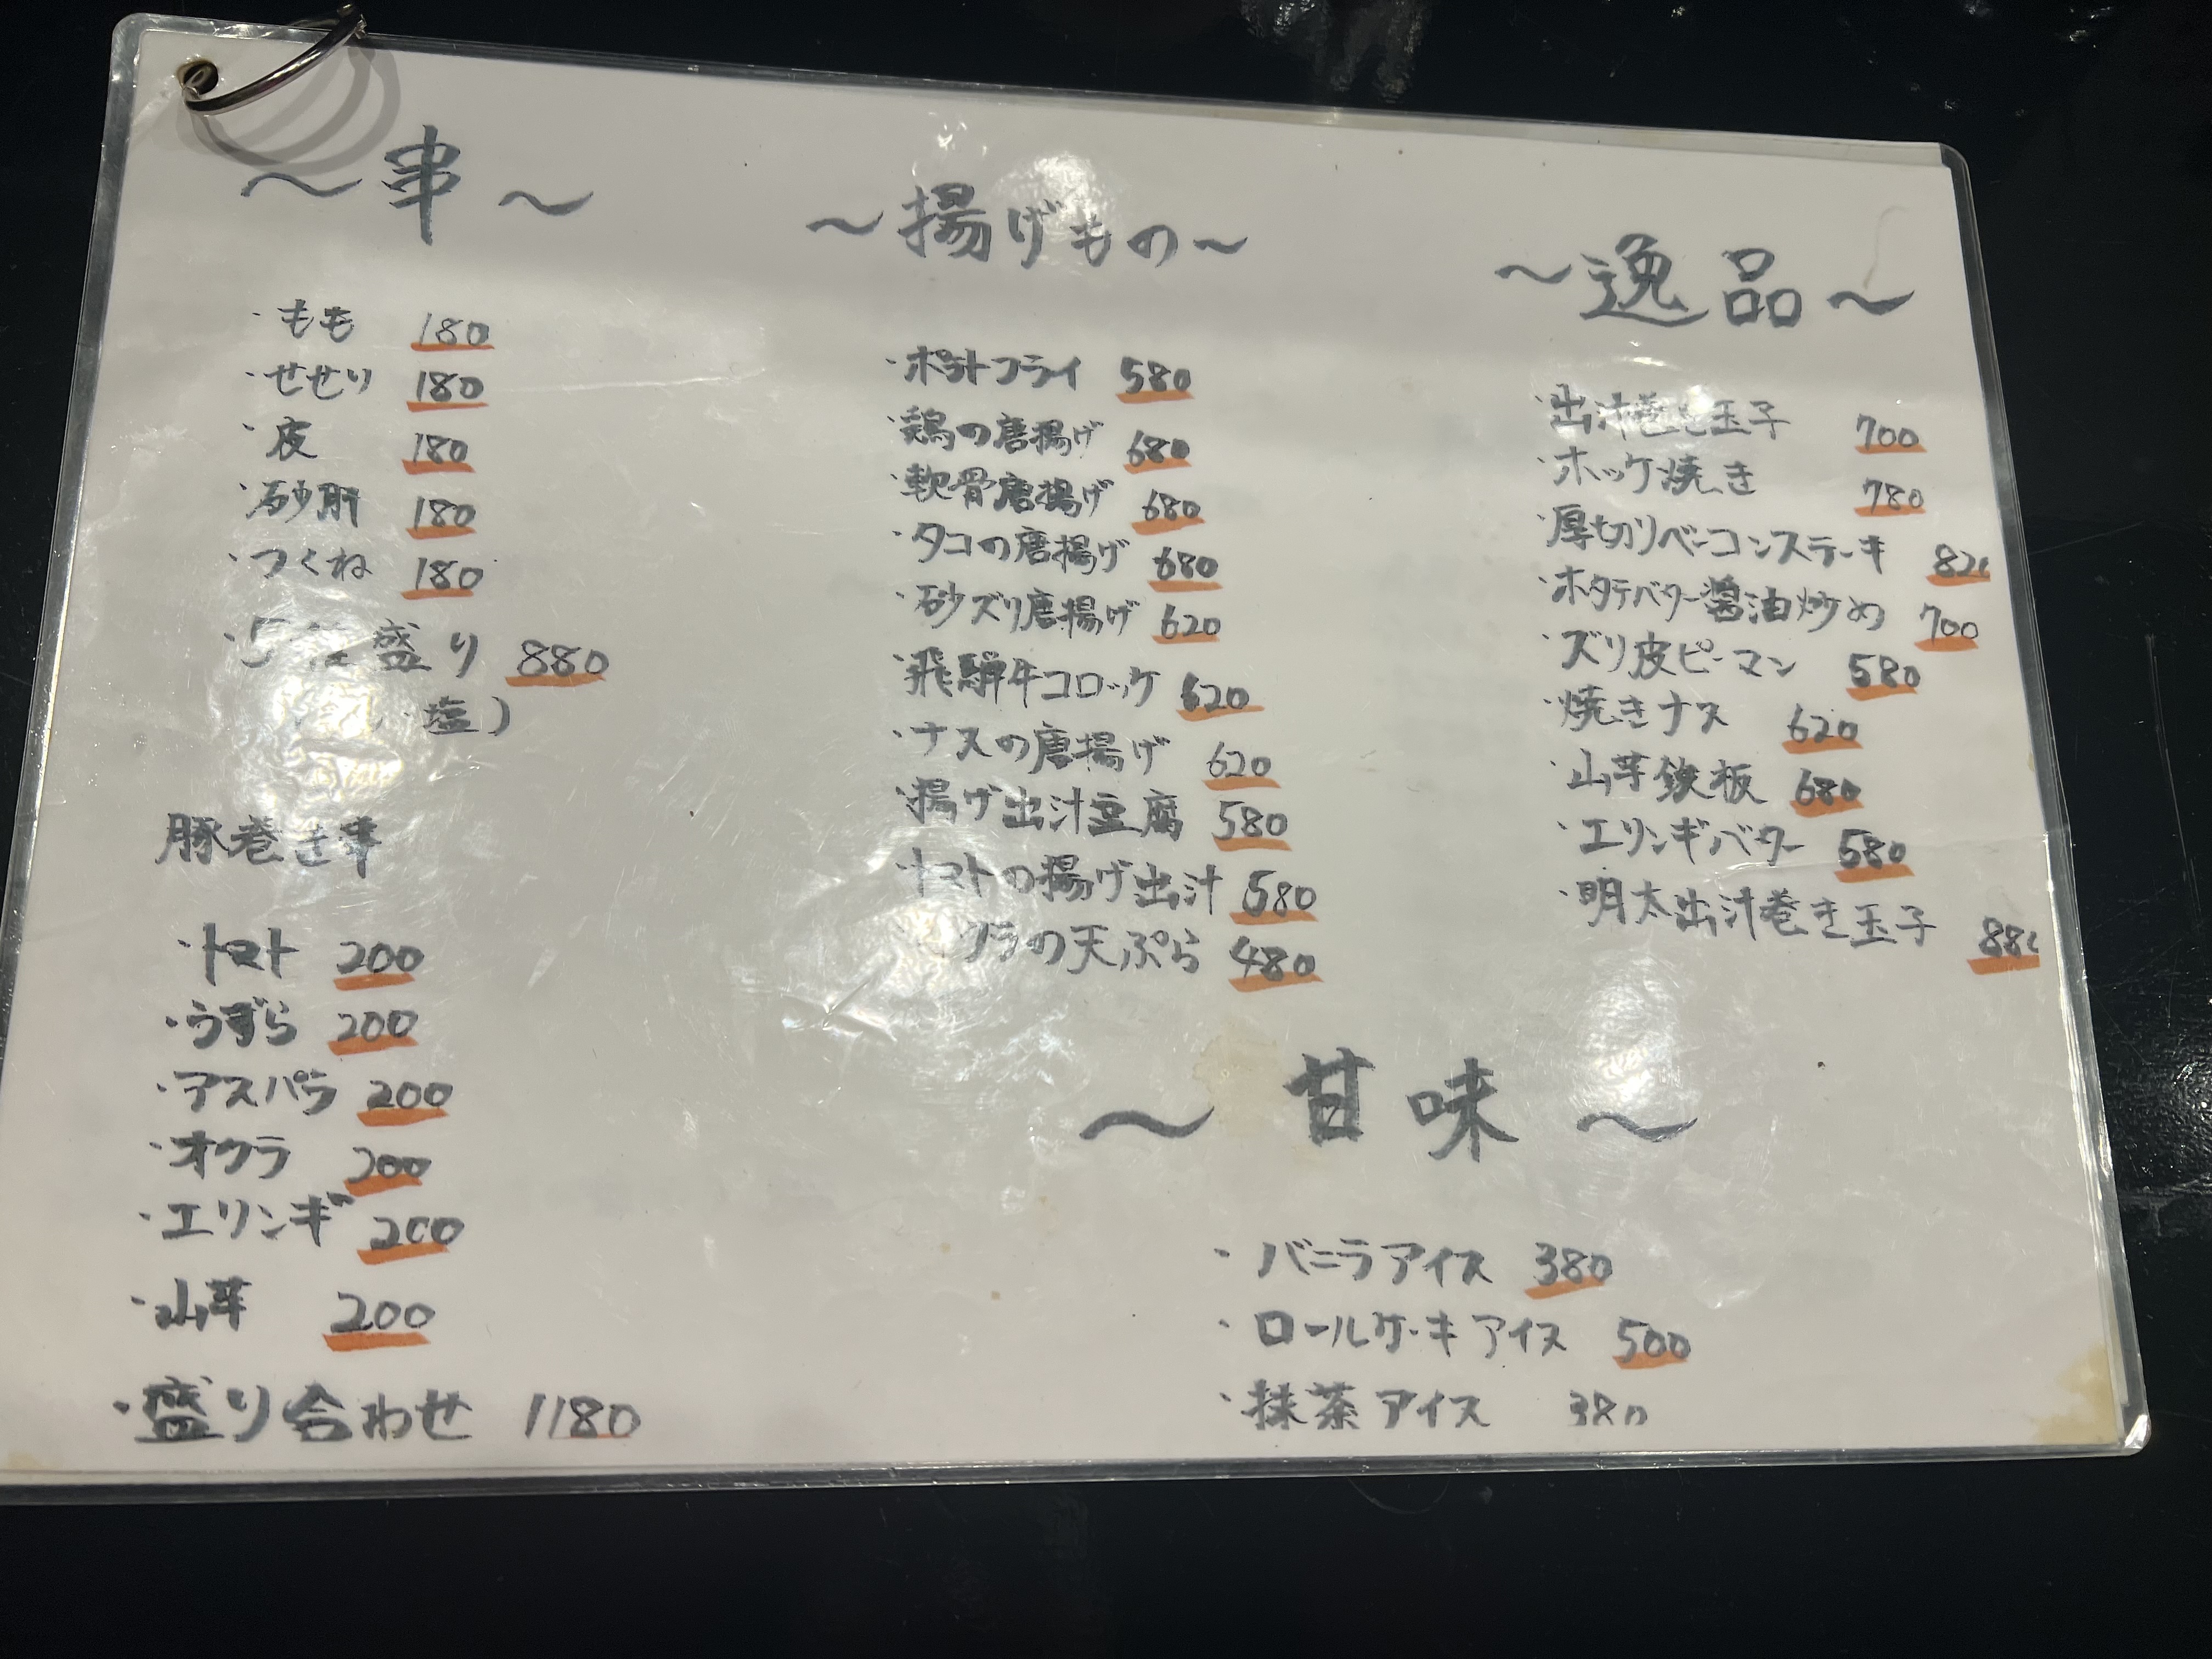 ～串～
・もも 180
・せせり 180
・皮 180
・砂肝 180
・つくね 180
・5 盛り 880
塩)
豚巻き串
・トマト 200
・うずら 200
・アスパラ 200
・オクラ 200
・エリンギ 200
・山芋 200
・盛り合わせ 1180
～揚げもの～
・ポテトフライ 580
・鶏の唐揚げ 680
・軟骨唐揚げ 680
・タコの唐揚げ 680
・砂ズリ唐揚げ 620
・飛騨牛コロッケ 620
・ナスの唐揚げ 620
・揚げ出汁豆腐 580
・トマトの揚げ出汁 580
クラの天ぷら 480
～逸品～
・出汁巻き玉子 700
・ホッケ焼き 780
・厚切りベーコンステーキ 82
・ホタテバター醤油炒め 700
・ズリ皮ピーマン 580
・焼きナス 620
・山芋鉄板 680
・エリンギバター 580
・明太出汁巻き玉子 88
～甘味～
・バニラアイス 380
・ロールケーキアイス 500
・抹茶アイス 380